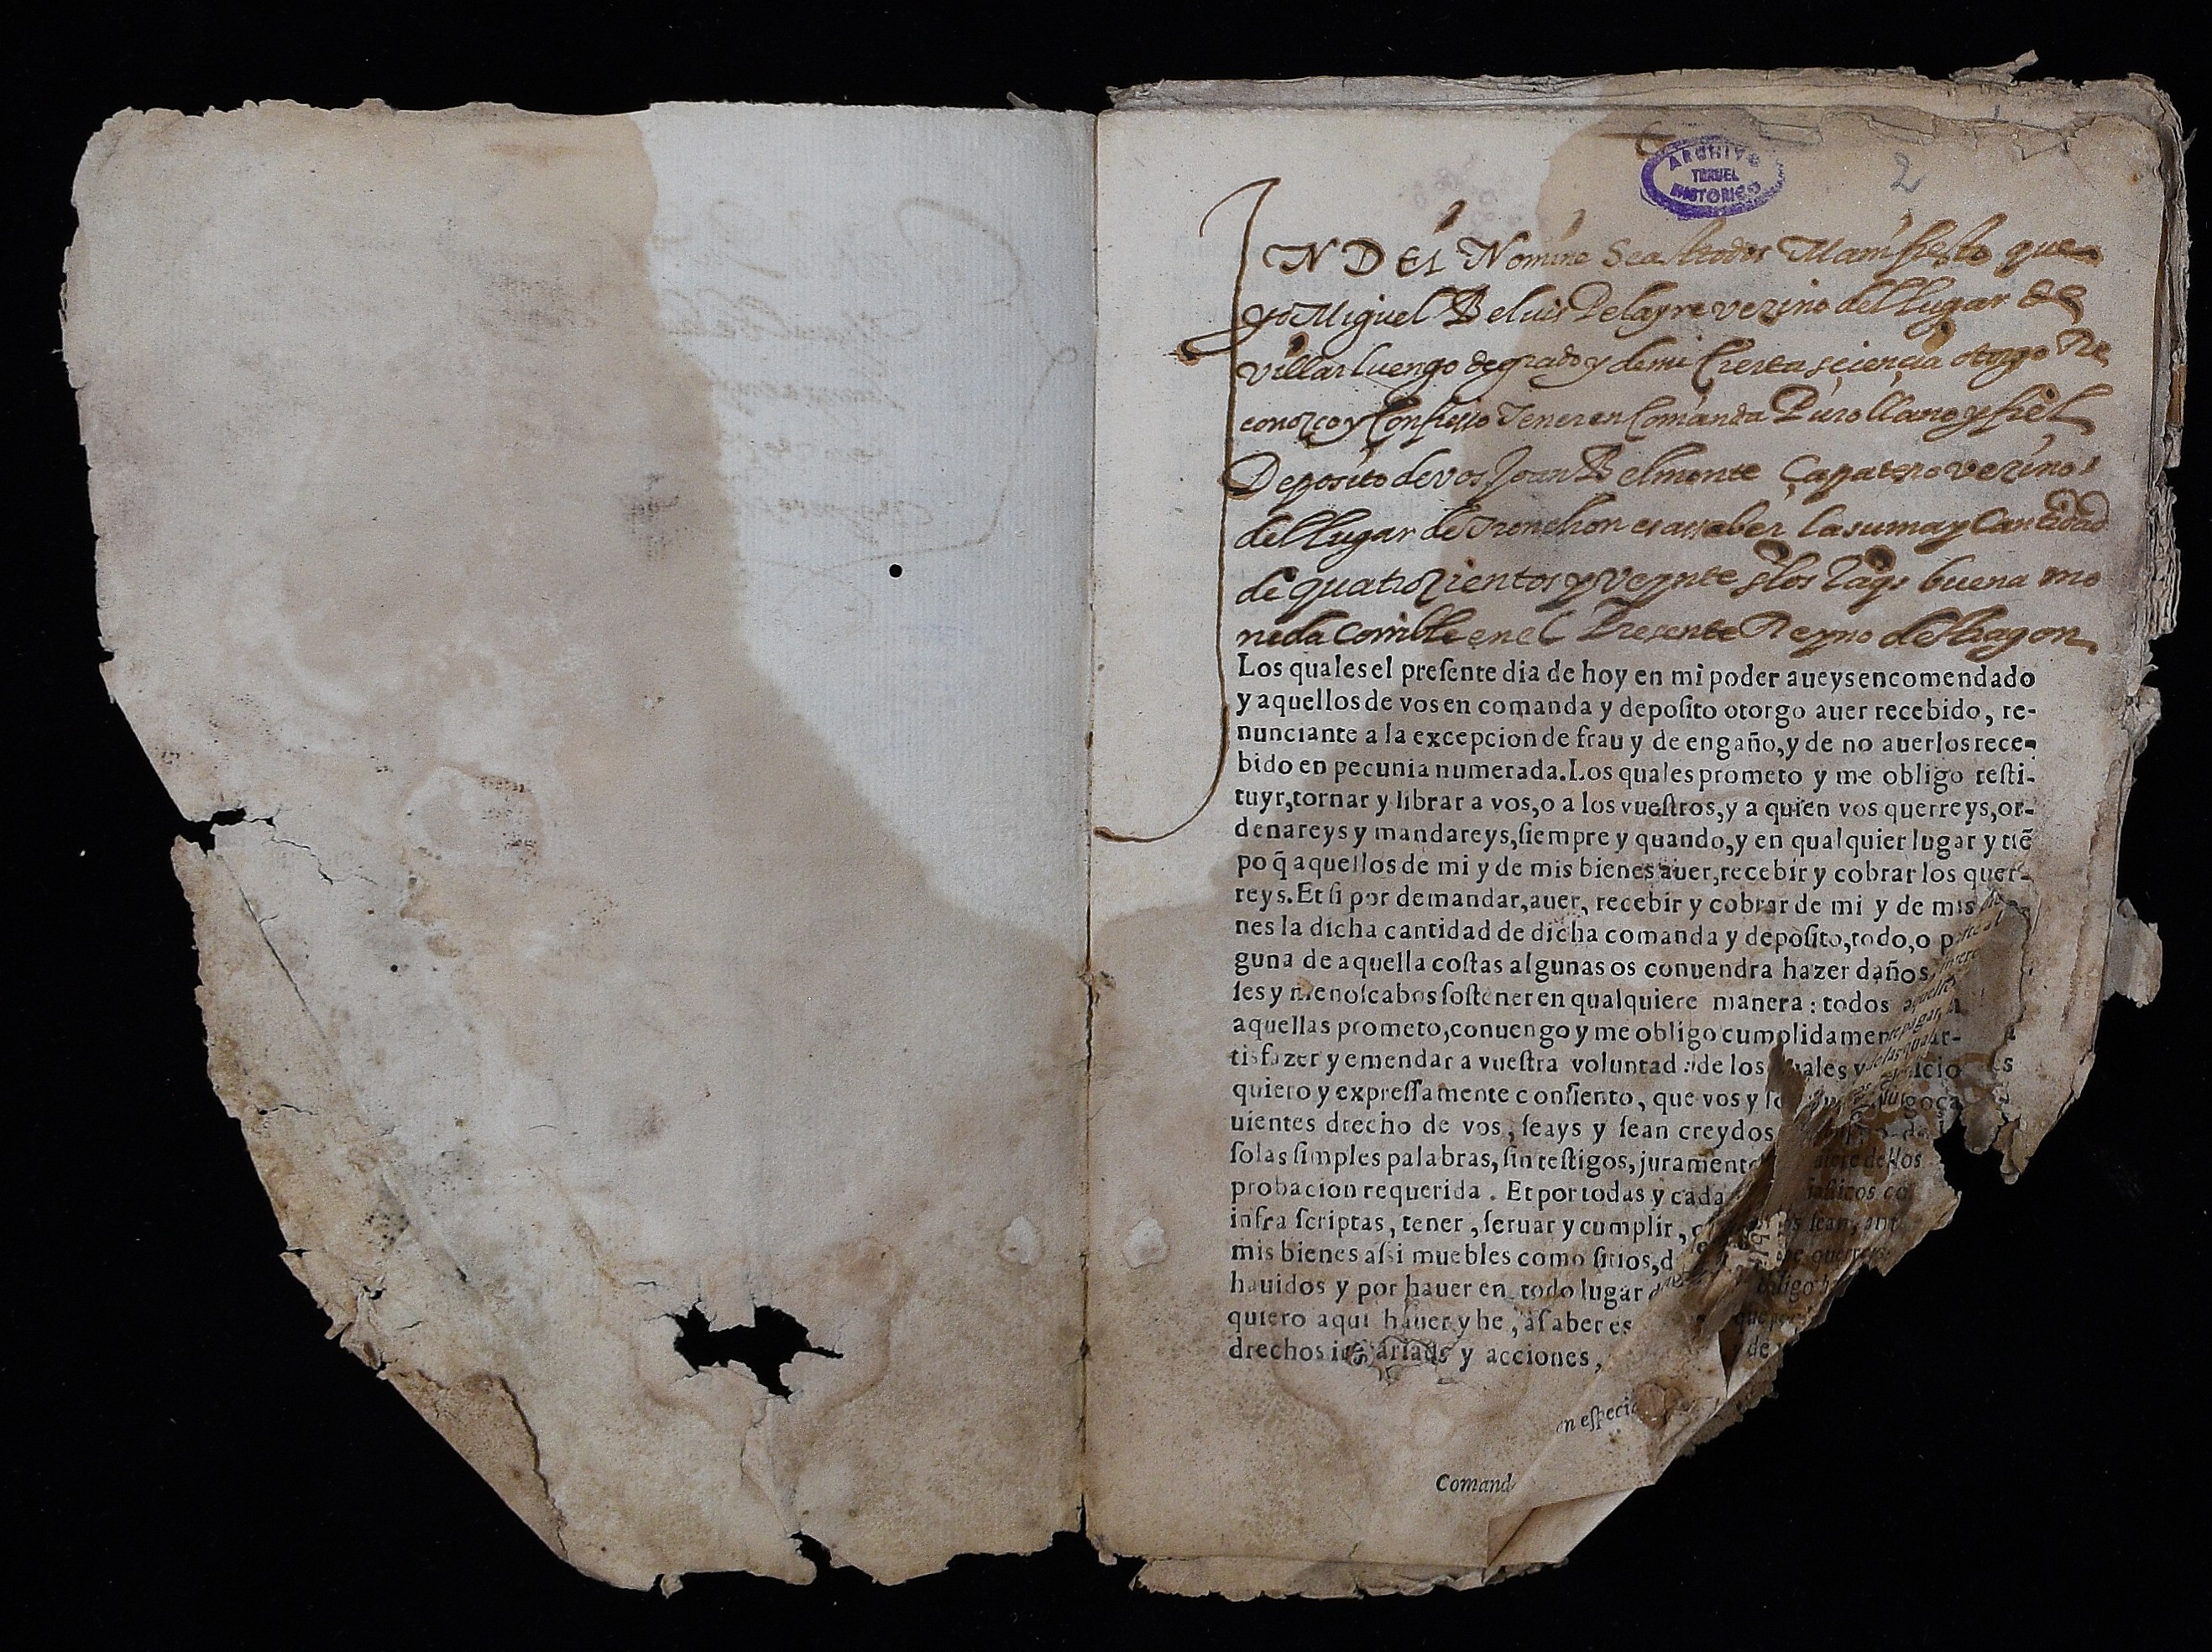 ARCHIVO
TERUEL
HISTORICO
2
IN DEI Nomine Sea atodos Manifiesto que
yo Miguel Beluis Pelayre vezino del lugar de
Villarluengo de grado y de mi Cierta sciencia otorgo Re
conozco y Confiesso Tener en Comanda Puro llano y fiel
Deposito de vos Joan Belmonte Çapatero vezino
del lugar de Tronchon es assaber la suma y Cantidad
de quatrozientos y veynte slos Jaqs buena mo
neda Corrible en el Presente Reyno de Aragon
Los quales el preſente dia de hoy en mi poder aueys encomendado
y aquellos de vos en comanda y depoſito otorgo auer recebido, re-
nunciante a la excepcion de frau y de engaño, y de no auerlos rece-
bido en pecunia numerada. Los quales prometo y me obligo reſti-
tuyr, tornar y librar a vos, o a los vueſtros, y a quien vos querreys, or-
denareys y mandareys, ſiempre y quando, y en qualquier lugar y tiẽ
po q̃ aquellos de mi y de mis bienes auer, recebir y cobrar los quer-
reys. Et ſi por demandar, auer, recebir y cobrar de mi y de mis
nes la dicha cantidad de dicha comanda y depoſito, todo, o p
guna de aquella coſtas algunas os conuendra hazer daños,
ſes y menoſcabos ſoſtener en qualquiere manera: todos aquellos
aquellas prometo, conuengo y me obligo cumplidamen
tisfazer y emendar a vueſtra voluntad: de los quales y
quiero y expreſſamente conſiento, que vos y lo
uientes drecho de vos, ſeays y ſean creydos
ſolas ſimples palabras, ſin teſtigos, jurament
probacion requerida. Et por todas y cada
infra ſcriptas, tener, ſeruar y cumplir,
mis bienes aſsi muebles como ſitios, d
hauidos y por hauer en todo lugar
quiero aqui hauer y he, aſaber es
drechos inſtariado y acciones,
en eſpecia
Comand